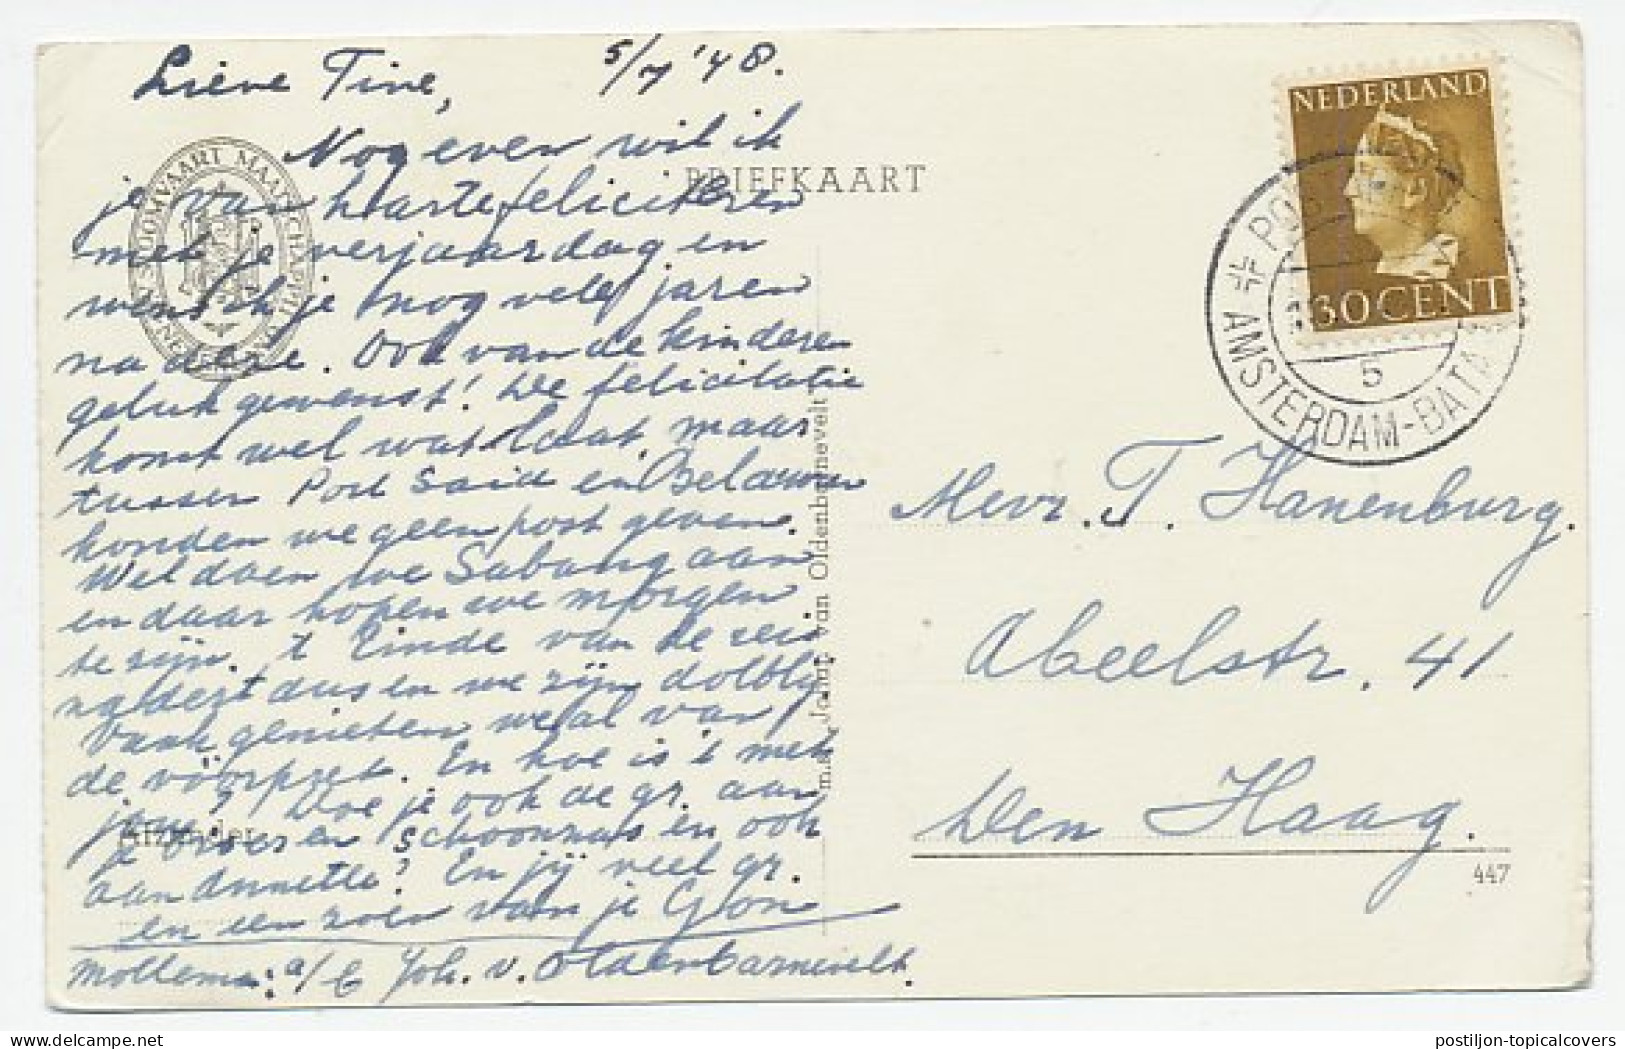 Lieve Tine, 5/7 '48.
Nog even wil ik
je van harte feliciteren
met je verjaardag en
wensch je nog vele jaren
na deze. Ook van de kinderen
geluk gewenst! De felicitatie
komt wel wat laat, maar
tussen Port Said en Belawan
konden we geen post geven.
Wel doen we Sabang aan
en daar hopen we morgen
te zijn. 't Einde van de reis
nadert dus en we zijn dolblij
Vaak genieten we al van
de vóórpret. En hoe is 't met
jou? Doe je ook de gr. aan
je broer en schoonzus en ook
aan Annette? En jij veel gr.
en een zoen van je Gon
Mollema: a/b Joh. v. Oldenbarnevelt.
STOOMVAART MAATSCHAPPIJ NEDERLAND
BRIEFKAART
Afzender
m.s. Johan van Oldenbarnevelt
NEDERLAND
30 CENT
AMSTERDAM-BATA
5
Mevr. T. Hanenburg.
Abeelstr. 41
Den Haag.
447
www.delcampe.net
postiljon-topicalcovers